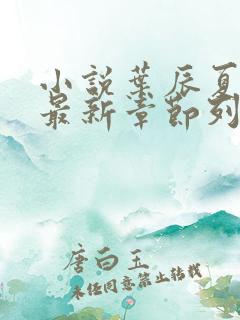 小说叶辰夏
最新章节列
唐白玉
未经同意禁止转载